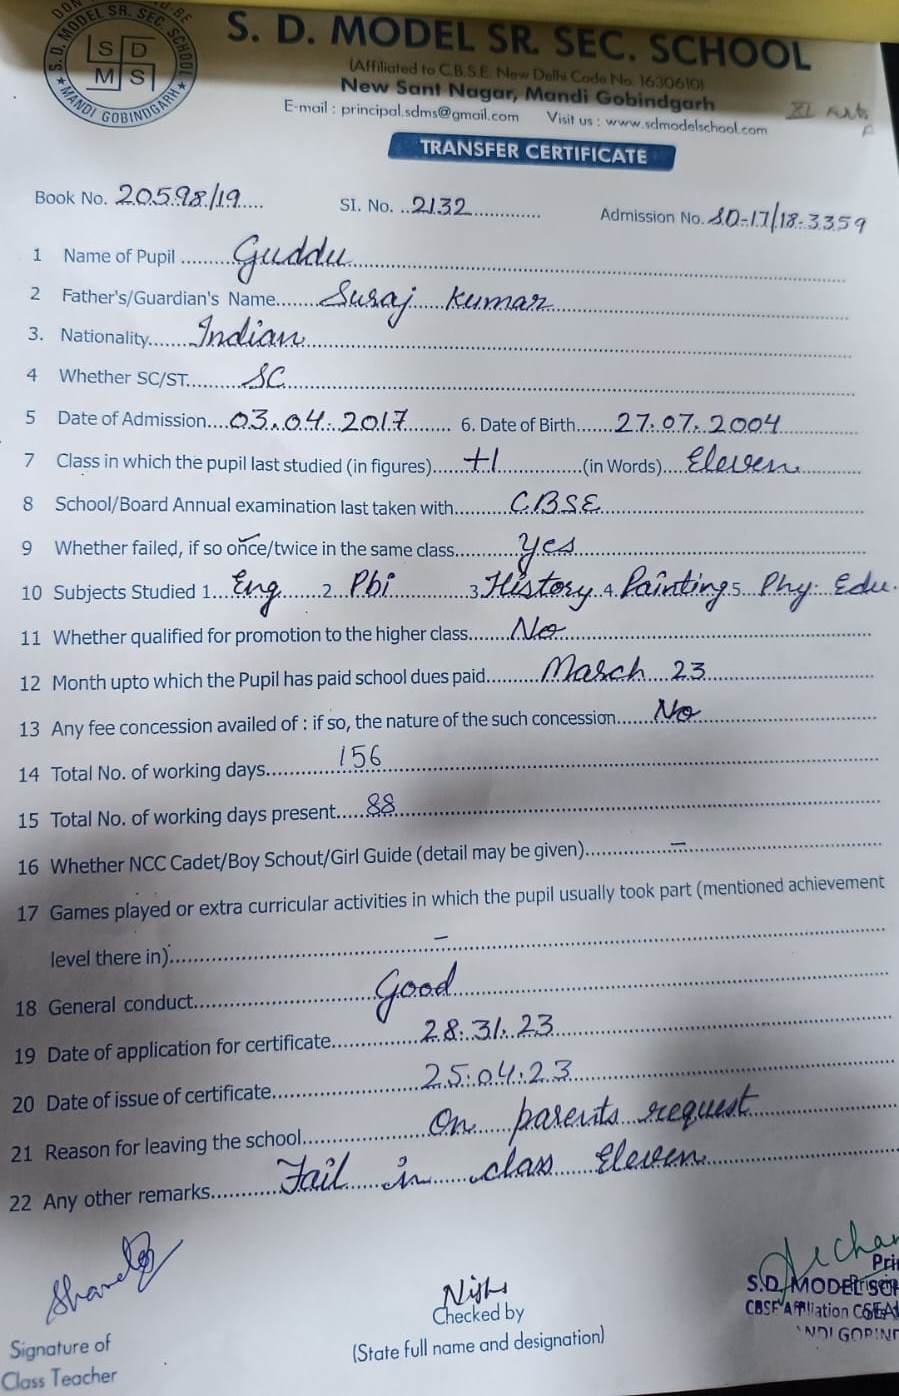 S. D. MODEL SR. SEC. SCHOOL
S. D. MODEL SR. SEC. SCHOOL
S D
M S
MANDI GOBINDGARH
(Affiliated to C.B.S.E. New Delhi Code No. 1630610)
New Sant Nagar, Mandi Gobindgarh
E-mail : principal.sdms@gmail.com Visit us : www.sdmodelschool.com
XI Arts
TRANSFER CERTIFICATE
Book No. 20598/19 SI. No. 2132 Admission No. SD-17/18-3359
1 Name of Pupil Guddu
2 Father's/Guardian's Name Suraj Kumar
3. Nationality Indian
4 Whether SC/ST SC
5 Date of Admission 03.04.2017 6. Date of Birth 27.07.2004
7 Class in which the pupil last studied (in figures) +1 (in Words) Eleven
8 School/Board Annual examination last taken with CBSE
9 Whether failed, if so once/twice in the same class yes
10 Subjects Studied 1 Eng 2 Pbi 3 History 4. Painting 5 Phy. Edu.
11 Whether qualified for promotion to the higher class No
12 Month upto which the Pupil has paid school dues paid March 23
13 Any fee concession availed of : if so, the nature of the such concession No
14 Total No. of working days 156
15 Total No. of working days present 88
16 Whether NCC Cadet/Boy Schout/Girl Guide (detail may be given) –
17 Games played or extra curricular activities in which the pupil usually took part (mentioned achievement
level there in) –
18 General conduct Good
19 Date of application for certificate 28.31.23
20 Date of issue of certificate 25.04.23
21 Reason for leaving the school On parents request
22 Any other remarks Fail in class Eleven
Nisha
Checked by
(State full name and designation)
Signature of
Class Teacher
S.D. MODEL SCH
CBSE Affiliation C
SEA
NDI GOBIND